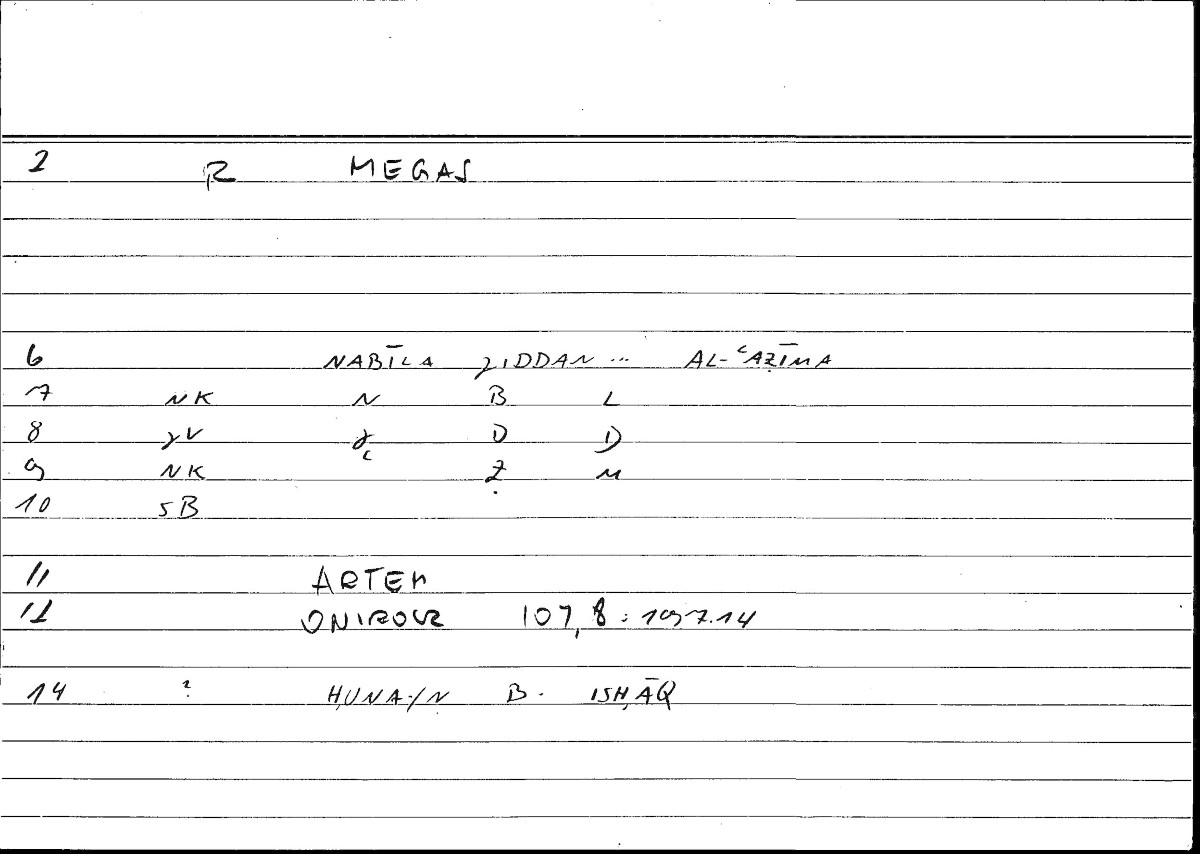 2 R MEGAS
6 NABĪLA ǧIDDAN ... AL-ʿAẒĪMA
7 NK N B L
8 ǧV ǧ D D
9 NK ʿ Ẓ M
10 SB
11 ARTEM
12 ONIROCR 107,8 : 197.14
14 ? ḤUNAYN B. ISḤĀQ